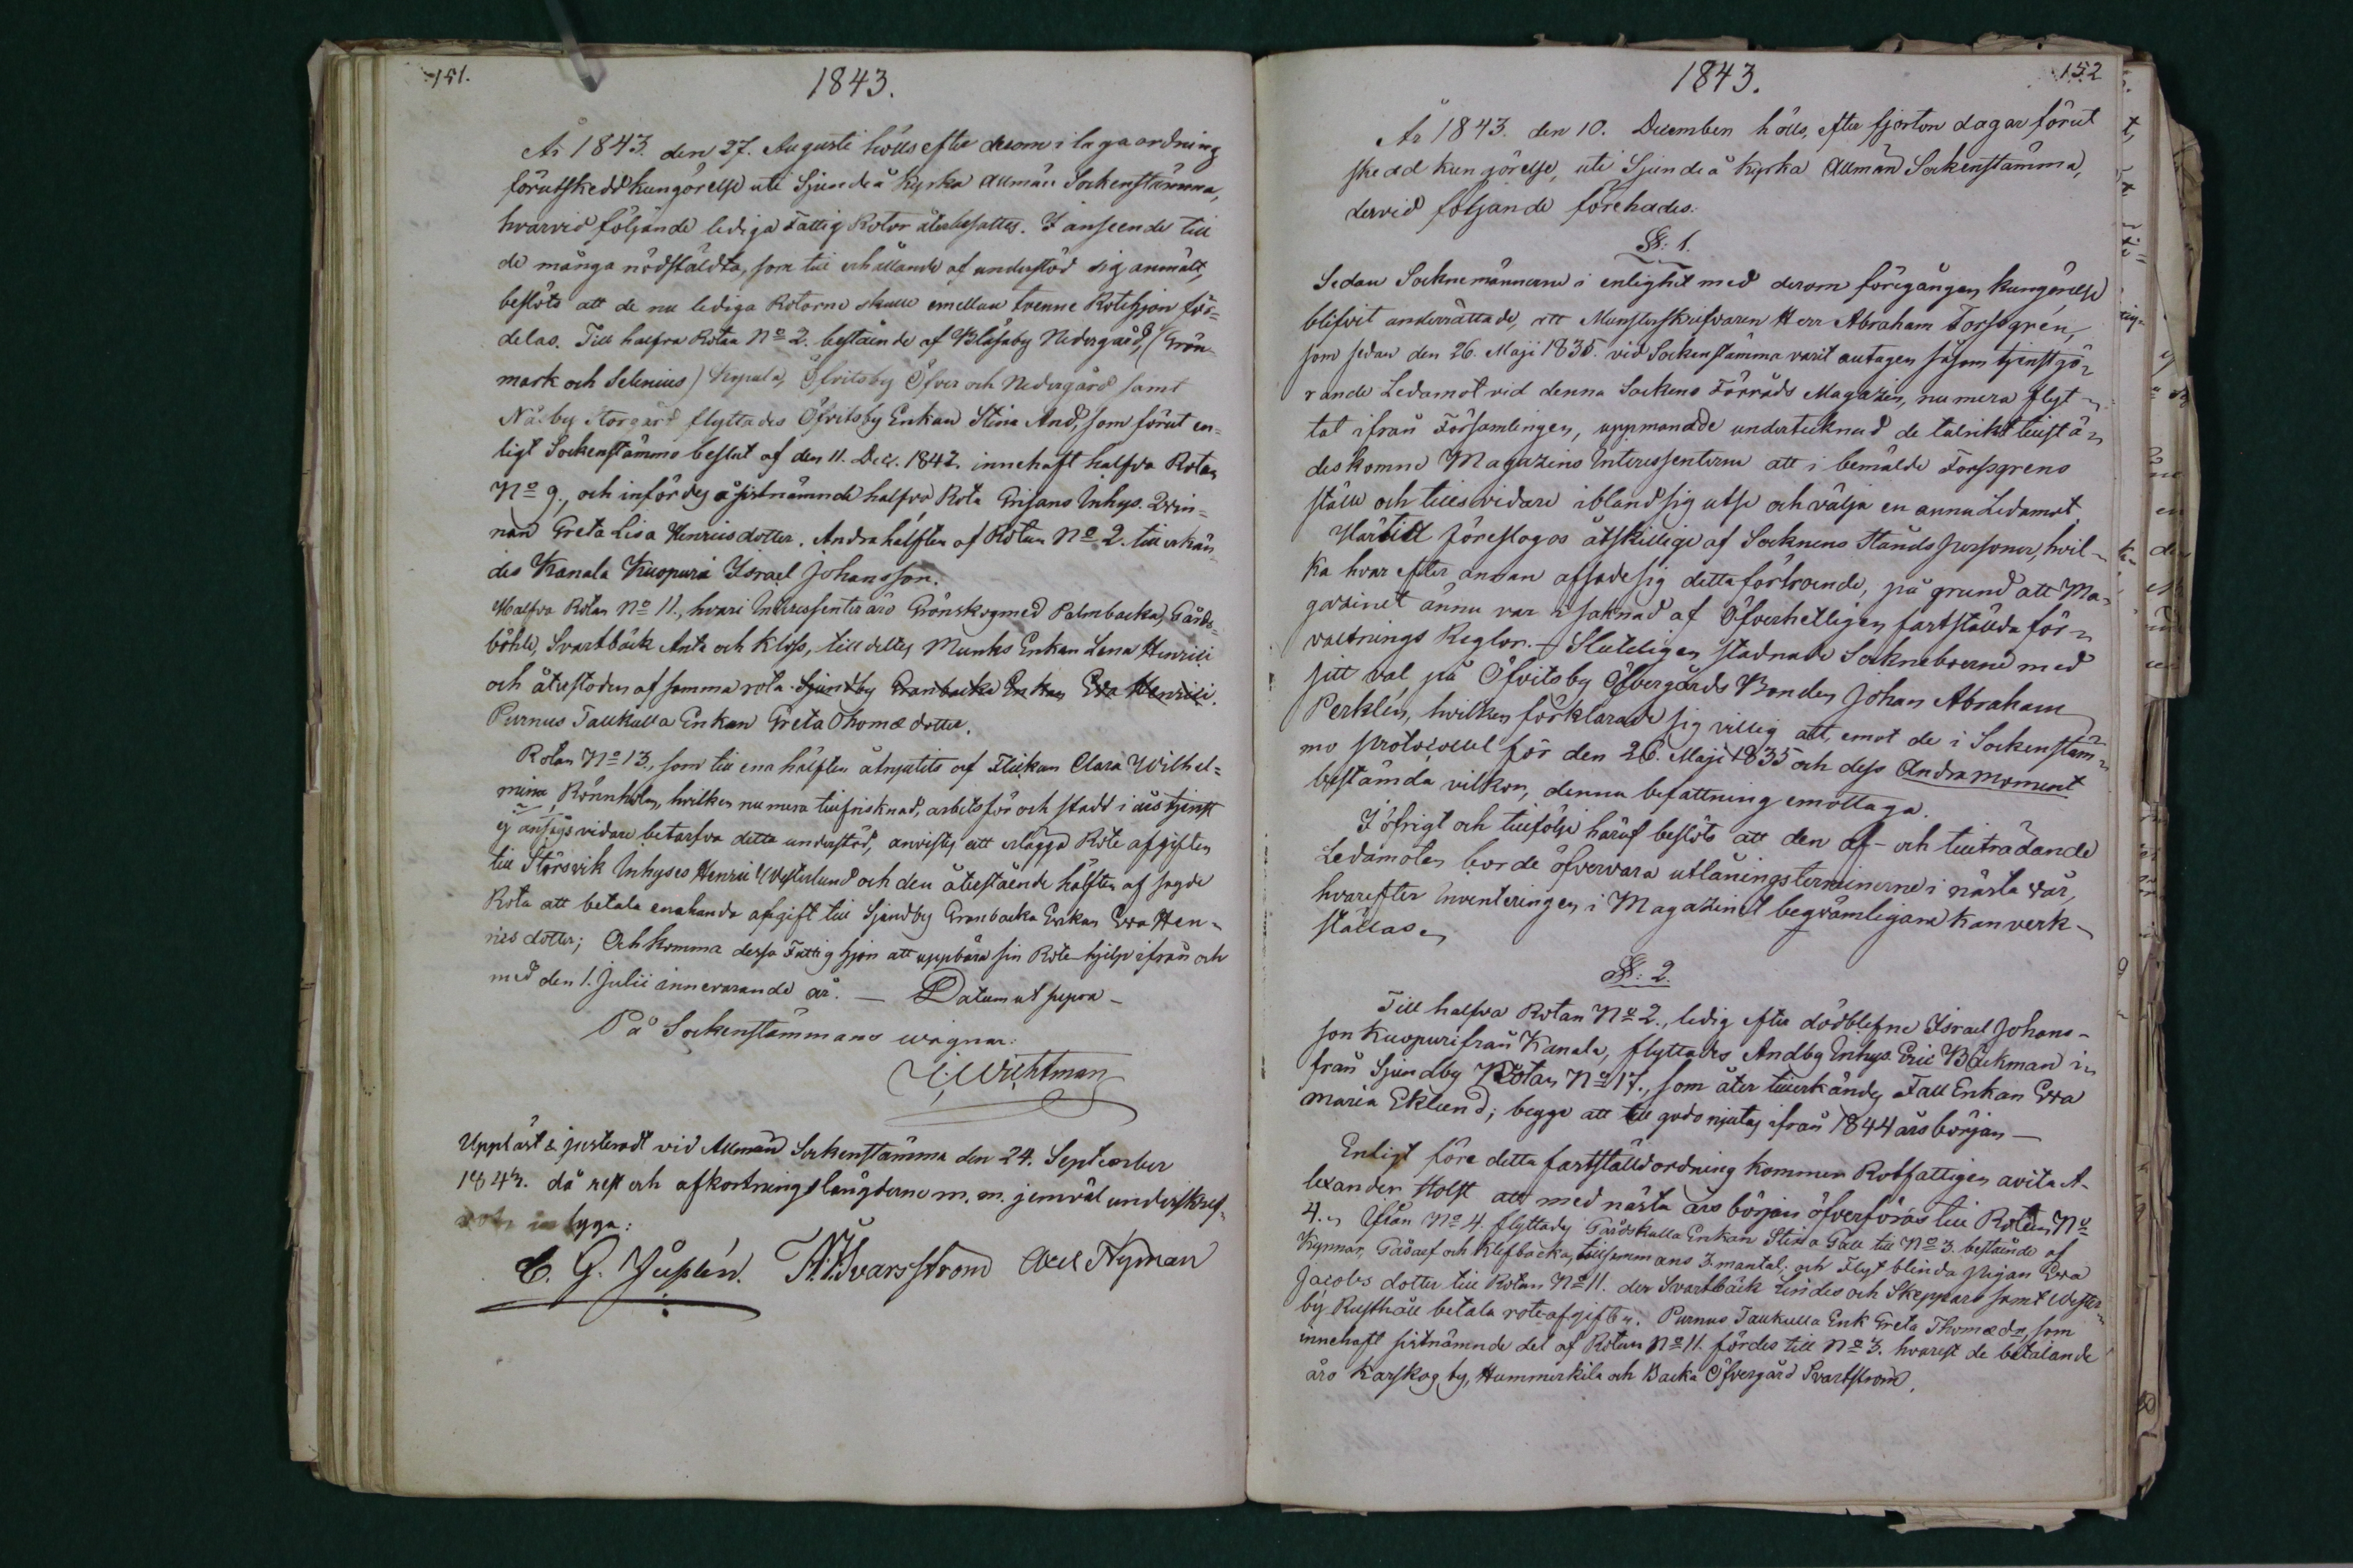 151.
1843.
År 1843. den 27. Augusti hölls efter derom i laga ordning
förutskedd kungörelse uti Sjundeå Kyrka Allmän Sockenstämma,
hvarvid följande lediga Fattig Rotor återbesattes. I anseende till
de många nödstäldta, som till erhållande af understöd sig anmält,
beslöts att de nu lediga Rotorne skulle emellan tvenne Rotehjon för=
delas. Till halfva Rotan No 2. bestående af Blåsaby Nedergård, (Grön-
mark och Selenius) Kypula, Öfvitsby Öfver och Nedergård samt
Näsby Storgård flyttades Öfvitsby Enkan Stina And, som förut en=
ligt Sockenstämmo beslut af den 11. Dec. 1842. innehaft halfva Rotan
No 9., och infördes å sistnämnde halfva Rota Grisans Inhys. Qvin=
nan Greta Lisa Henricsdotter. Andra hälften af Rotan No 2. tillerkän=
des Kanala Kuopuri Israel Johansson.
Halfva Rotan No 11., hvari Interessenter äro Grönskog med Palmbacka, Gårds=
böhle, Svartbäck Anta och Kloss, tilldeltes Munks Enkan Lena Henrici
och återstoden af samma rota Sjundby Granbacka Enkan Eva Henrici.
Purnus Tallkulla Enkan Greta Thomædotter.
Rotan No 13., som till ena hälften åtnjutits af Flickan Clara Wilhel=
mina Rönnholm, hvilken numera tillfrisknad, arbetsför och stadd i årstjenst
ej ansågs vidare betarfva detta understöd, anvistes att erlägga Rote afgiften
till Störsvik Inhyses Henric Westerlund och den återstående hälften af sagde
Rota att betala enahanda afgift till Sjundby Granbacka Enkan Eva Hen-
rics dotter; Och komma dessa Fattighjon att uppbära sin Rote-hjelp ifrån och
med den 1. Julii innevarande år. — Datum ut supra —
På Sockenstämmans vägnar:
Wichtman
Uppläst & justeradt vid Allmän Sockenstämma den 24. September
1843. då rest och afkortningslängderne m. m. jemväl underskref-
intyga:
C. G. Juslén. Ivarsström Axel Nyman
1843.
152
År 1843. den 10. December hölls, efter fjorton dagar förut
skedd kungörelse, uti Sjundeå Kyrka Allmän Sockenstämma,
dervid följande förehades:
§: 1.
Sedan Socknemännerne i enlighet med derom föregången kungörelse
blifvit underrättade, att Munsterskrifvaren Herr Abraham Forssgrén,
som sedan den 26. Maji 1835. vid Sockenstämma varit antagen såsom tjenstgö-
rande Ledamot vid denna Sockens Förråds Magazin, numera flyt-
tat ifrån Församlingen, uppmanade undertecknad de talrikt tillstä-
des komne Magazins Interessenterne att i bemälde Forssgrens
ställe och tillsvidare ibland sig utse och välja en annan Ledamot.
Härtill föreslogos åtskillige af Socknens Ståndspersoner, hvil-
ka hvar efter annan afsade sig detta förtroende, på grund att Ma-
gazinet ännu var i saknad af Öfverhetligen fastställda för-
valtnings Reglor. Slutligen stadnade Sockneboerne med
sitt val på Öfvitsby Öfvergårds Bonden Johan Abraham
Perklén, hvilken förklarade sig villig att, emot de i Sockenstäm-
mo protocoll för den 26. Maji 1835 och dess Andra moment
bestämda vilkor, denna befattning emottaga.
I öfrigt och tillfölje häraf beslöts att den af- och tillträdande
Ledamoten borde öfvervara utlåningsterminerne i nästa vår,
hvarefter Inventeringen i Magazinet beqvämligare kan verk-
ställas.
§: 2.
Till halfva Rotan No 2., ledig efter dödblefne Israel Johans-
son Kuopuri från Kanala, flyttades Andby Inhys. Eric Bäckman i-
från Sjundby Rotan No 17., som åter tillerkändes Fall Enkan Eva
Maria Eklund; begge att till godo njutas ifrån 1844 års början —
Enligt före detta fastställd ordning kommer Rotfattigen avita A-
lexander Holst att med nästa års början öfverföras till Rotan No
4. Ifrån No 4. flyttades Gårdskulla Enkan Stina Gall till No 3. bestående af
Kynnar, Påsarf och Klefbacka, tillsammans 3. mantal; och Flyt blinda pigan Eva
Jacobs dotter till Rotan No 11. der Svartbäck Lindes och Skeppars samt Wester-
by Rusthåll betala roteafgiften. Purnus Tallkulla Enk Greta Thomædr, som
innehaft sistnämnde del af Rotan No 11. fördes till No 3. hvarest de betalande
äro Karskog by, Hummerkila och Backa Öfvergård Svartström.